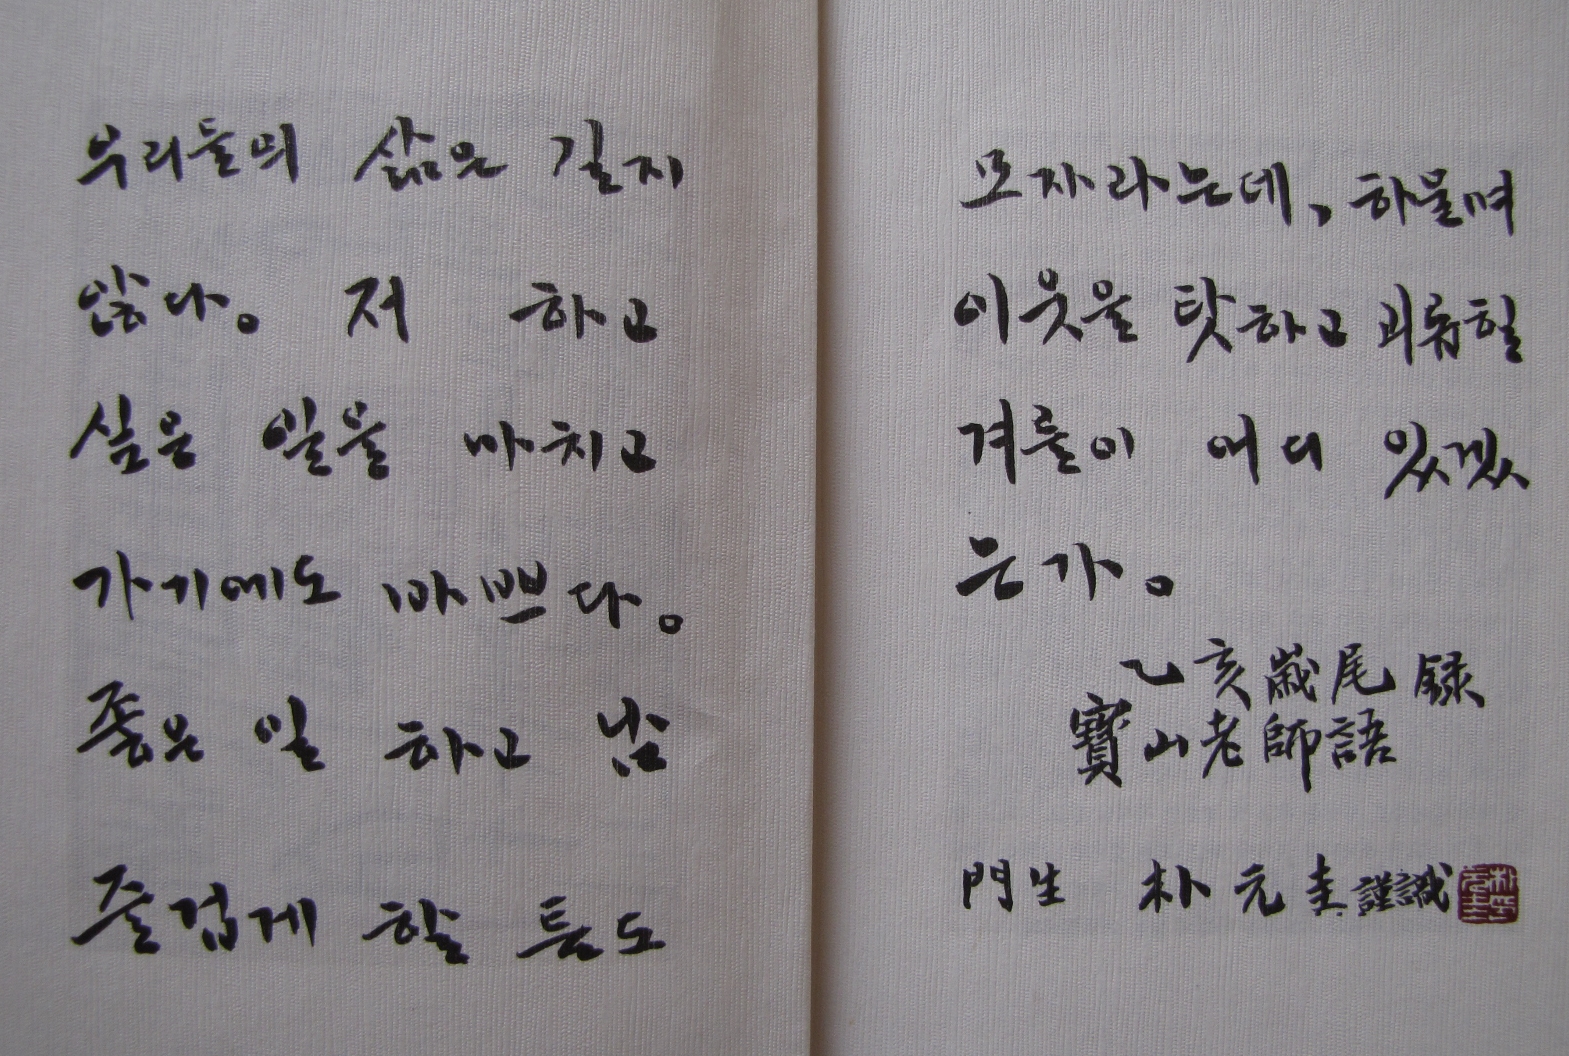 우리들의 삶은 길지
않다。 저 하고
싶은 일을 마치고
가기에도 바쁘다。
좋은 일 하고 남
즐겁게 할 틈도
모자라는데, 하물며
이웃을 탓하고 괴롭힐
겨를이 어디 있겠
는가。
乙亥歲尾 錄
寶山老師語
門生 朴元圭謹識